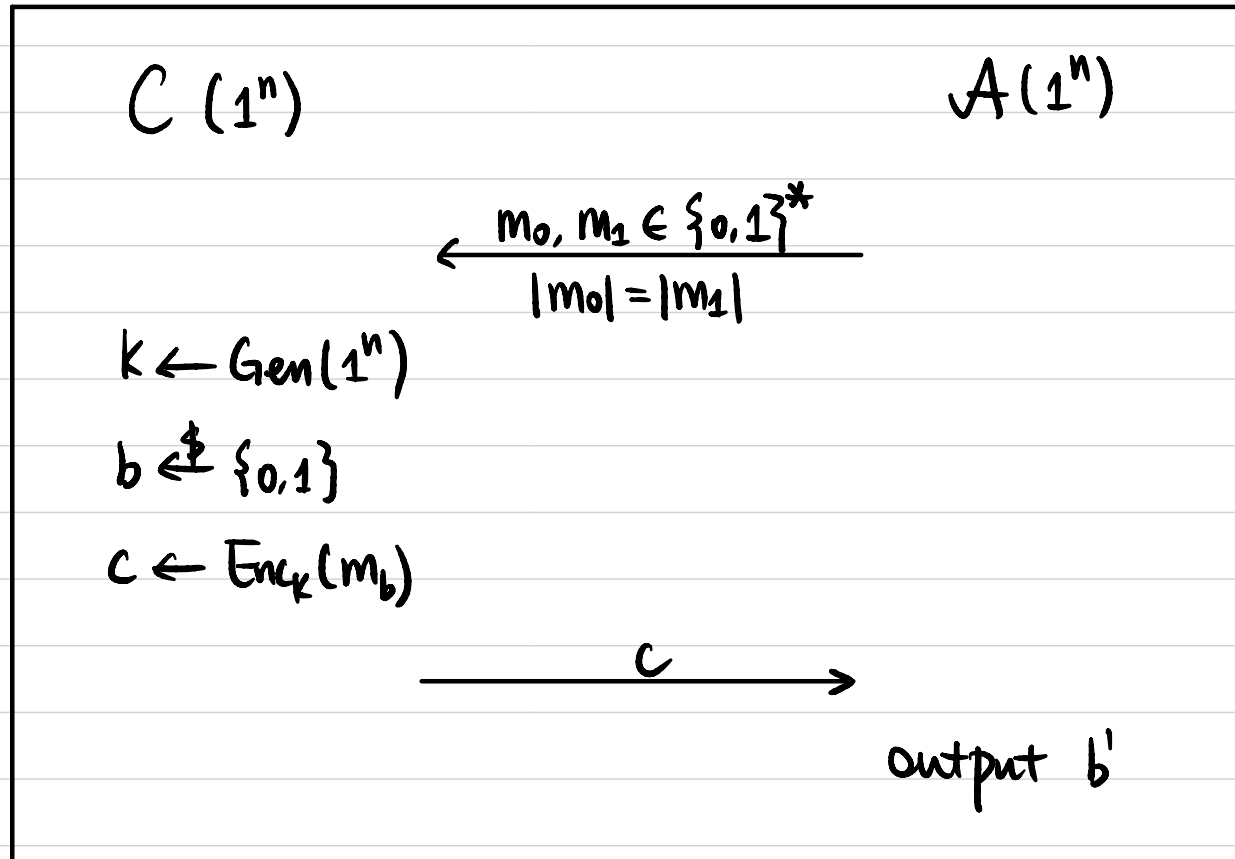 C (1ⁿ) A(1ⁿ)
m₀, m₁ ∈ {0,1}*
|m₀| = |m₁|
k ← Gen(1ⁿ)
b ←$ {0,1}
c ← Encₖ(m_b)
c
output b'